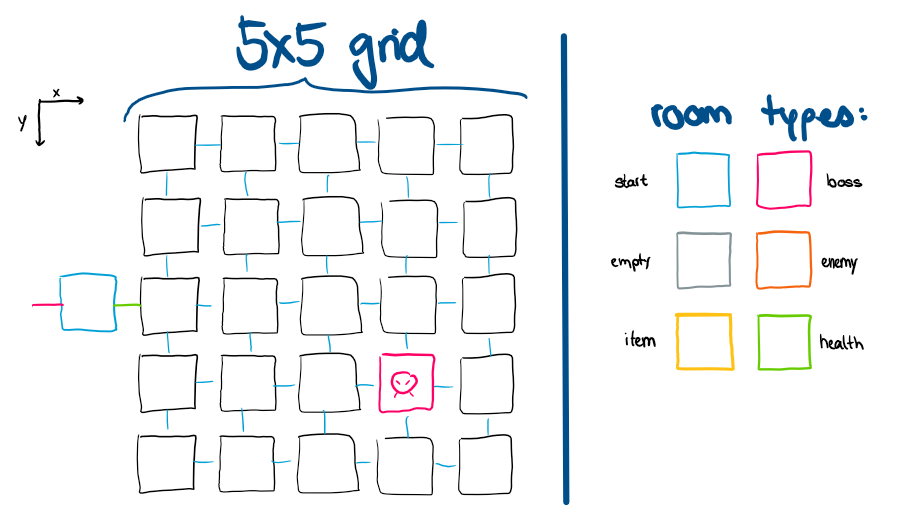 5x5 grid
x
y
room types:
start
boss
empty
enemy
item
health